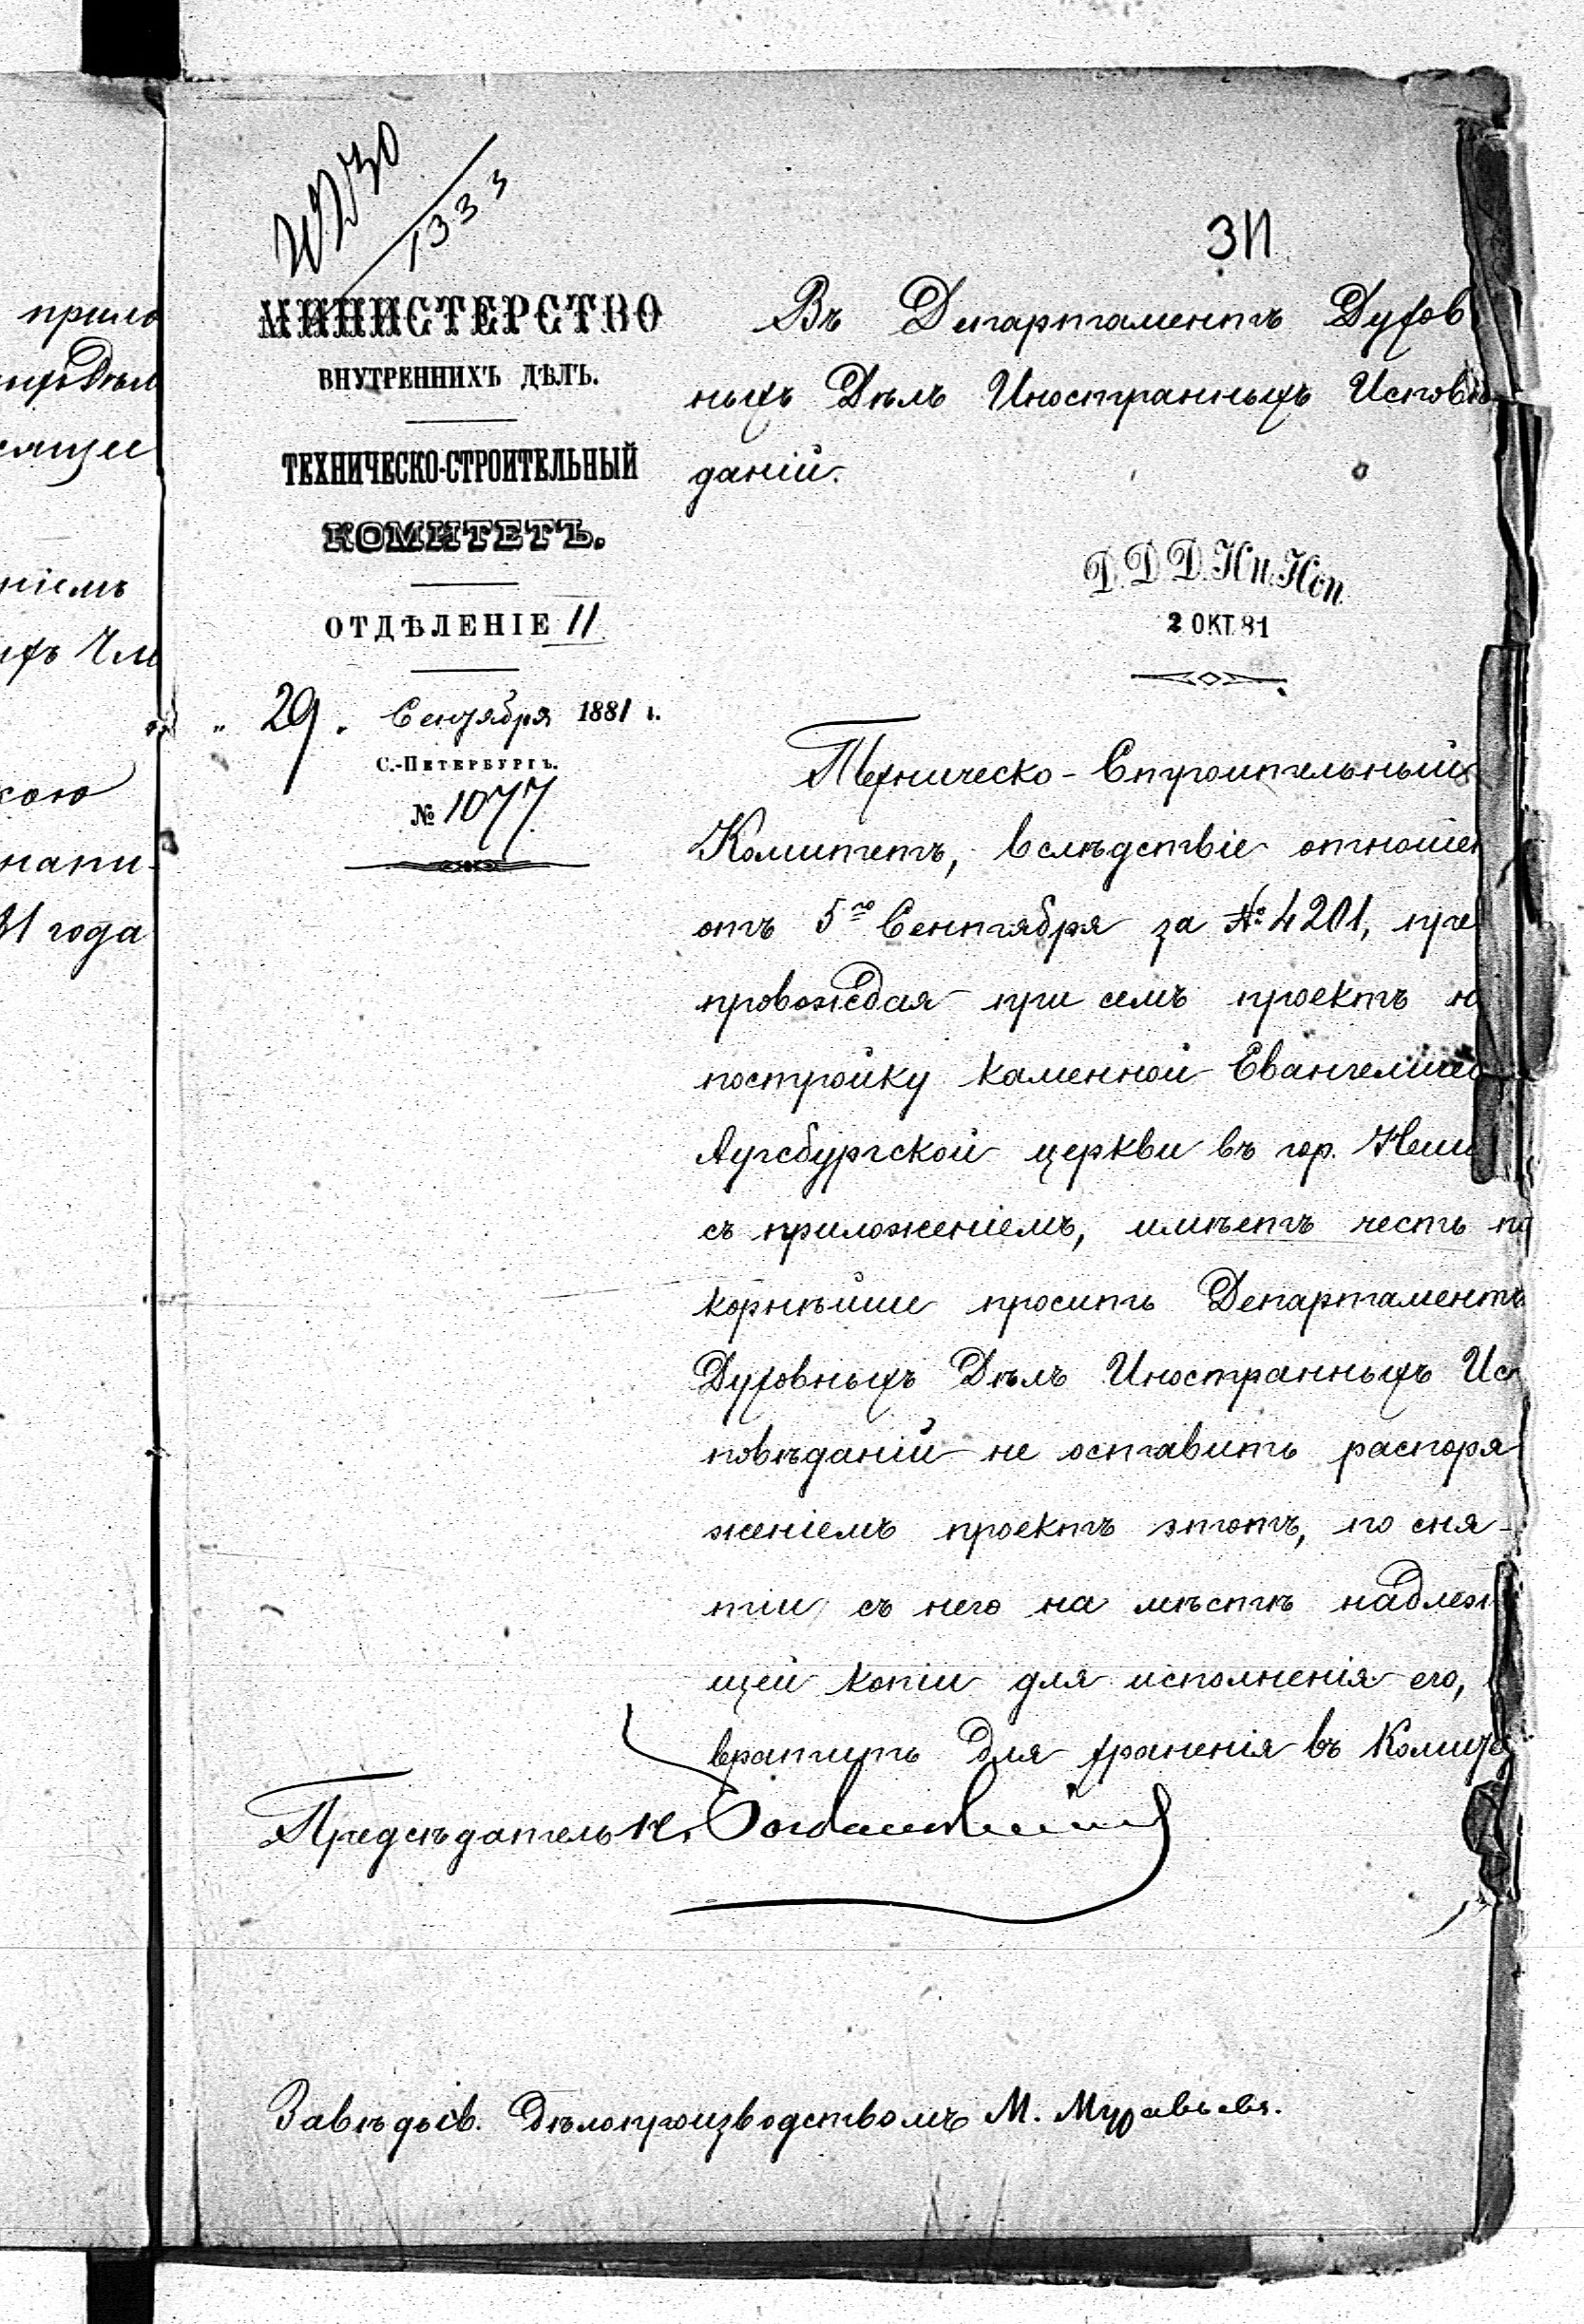 прило
сящее
ніемъ
ихъ Чи
кою
напи-
81 года
1333
31
МИНИСТЕРСТВО
ВНУТРЕННИХЪ ДѢЛЪ.
ТЕХНИЧЕСКО-СТРОИТЕЛЬНЫЙ
КОМИТЕТЪ.
ОТДѢЛЕНІЕ II
„ 29 „ Сентября 1881 г.
С.-ПЕТЕРБУРГЪ.
№ 1077
Въ Департаментъ Духов
ныхъ Дѣлъ Иностранныхъ Исповѣ
даній.
Д.Д.Д.Ин.Исп.
2 ОКТ. 81
Техническо-Строительный
Комитетъ, вслѣдствіе отношен
отъ 5го Сентября за № 4201, пре
провождая при семъ проектъ н
постройку каменной Евангеличес
Аугсбургской церкви въ гор.
съ приложеніемъ, имѣетъ честь по
корнѣйше просить Департаментъ
Духовныхъ Дѣлъ Иностранныхъ Ис
повѣданій не оставить распоря
женіемъ проектъ этотъ, по сня-
тіи съ него на мѣстѣ надлеж
щей копіи для исполненія его,
вратить для храненія въ Комите
Предсѣдатель
Завѣдыв. Дѣлопроизводствомъ М. Муравьевъ.